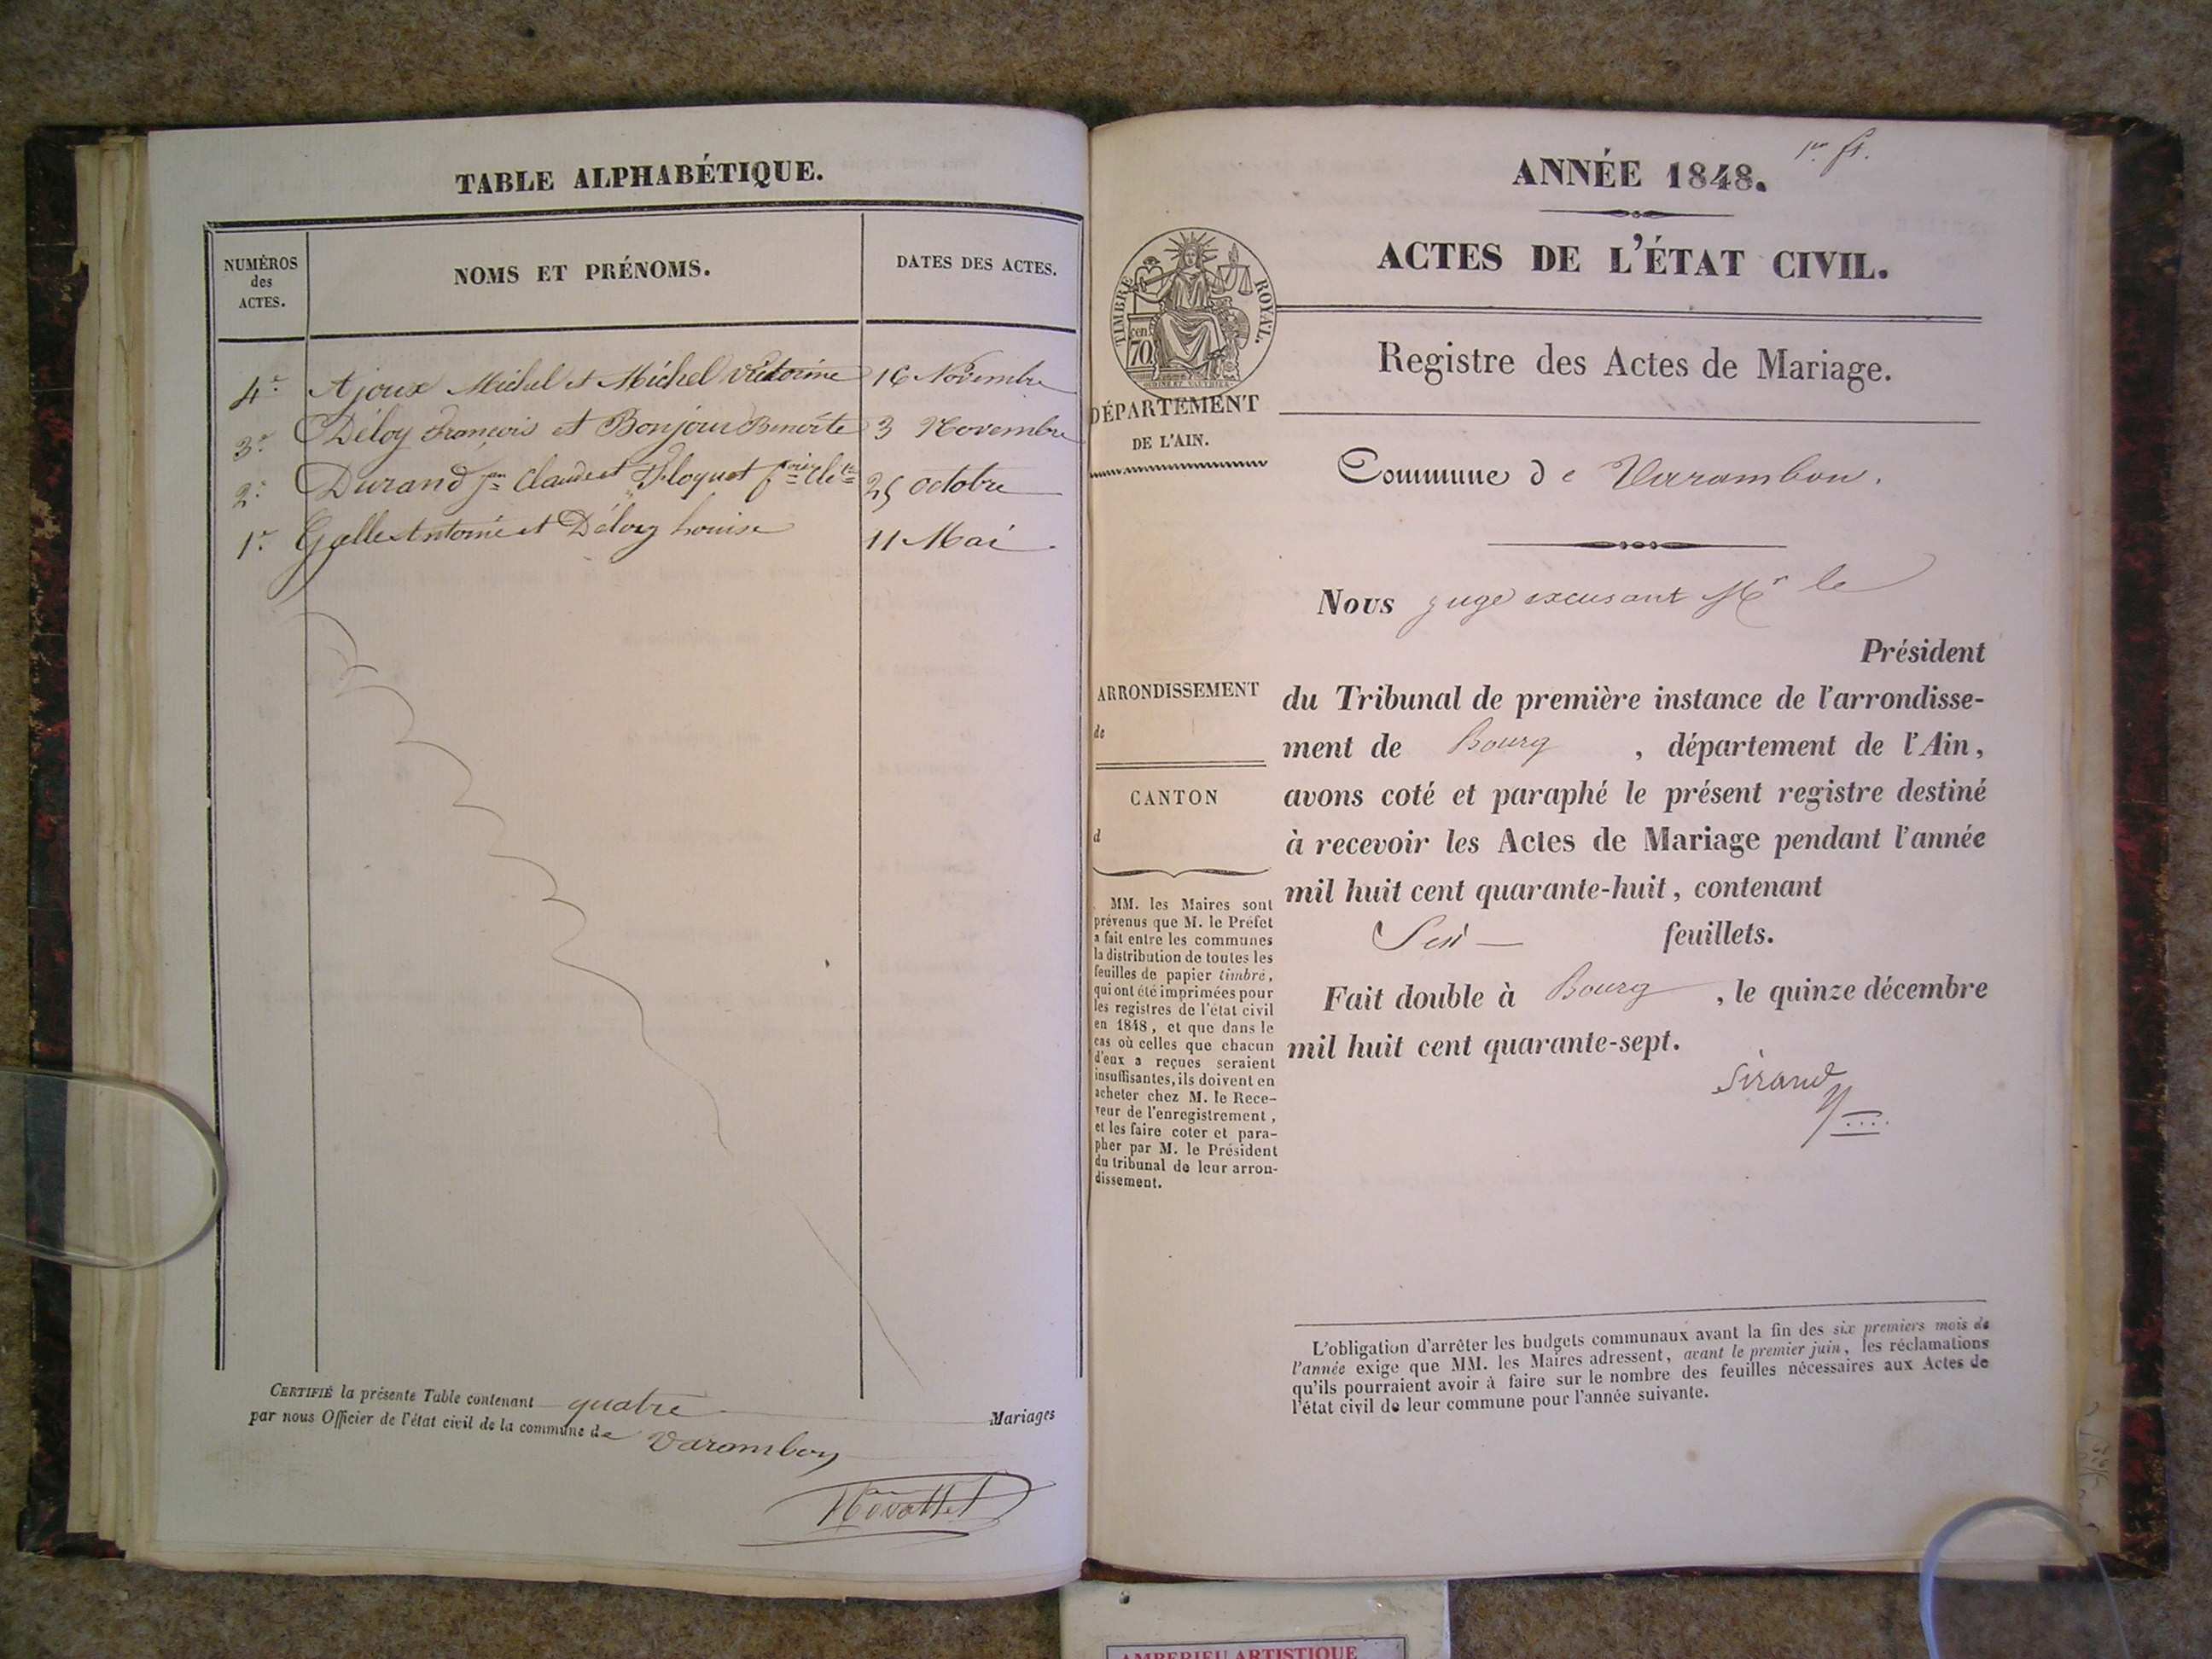 TABLE ALPHABÉTIQUE.
NUMÉROS
des
ACTES.
NOMS ET PRÉNOMS.
DATES DES ACTES.
4e. Ajoux Michel et Michel Victorine 16 Novembre
3e. Déloy François et Bonjour Benoîte 3 Novembre
2e. Durand Claude et Floquet 25 octobre
1r. Galle Antoine et Déloy Louise 11 Mai
CERTIFIÉ la présente Table contenant quatre Mariages
par nous Officier de l'état civil de la commune de Varambon
1er ft.
ANNÉE 1848.
ACTES DE L'ÉTAT CIVIL.
TIMBRE ROYAL.
cen.
70
Registre des Actes de Mariage.
DÉPARTEMENT
DE L'AIN.
Commune de Varambon.
Nous juge excusant Mr le
Président
du Tribunal de première instance de l'arrondisse-
ment de Bourg, département de l'Ain,
avons coté et paraphé le présent registre destiné
à recevoir les Actes de Mariage pendant l'année
mil huit cent quarante-huit, contenant
feuillets.
Fait double à Bourg, le quinze décembre
mil huit cent quarante-sept.
Sirand
ARRONDISSEMENT
de
CANTON
d
MM. les Maires sont
prévenus que M. le Préfet
a fait entre les communes
la distribution de toutes les
feuilles de papier timbré,
qui ont été imprimées pour
les registres de l'état civil
en 1848, et que dans le
cas où celles que chacun
d'eux a reçues seraient
insuffisantes, ils doivent en
acheter chez M. le Rece-
veur de l'enregistrement,
et les faire coter et para-
pher par M. le Président
du tribunal de leur arron-
dissement.
L'obligation d'arrêter les budgets communaux avant la fin des six premiers mois de
l'année exige que MM. les Maires adressent, avant le premier juin, les réclamations
qu'ils pourraient avoir à faire sur le nombre des feuilles nécessaires aux Actes de
l'état civil de leur commune pour l'année suivante.
AMBERIEU ARTISTIQUE